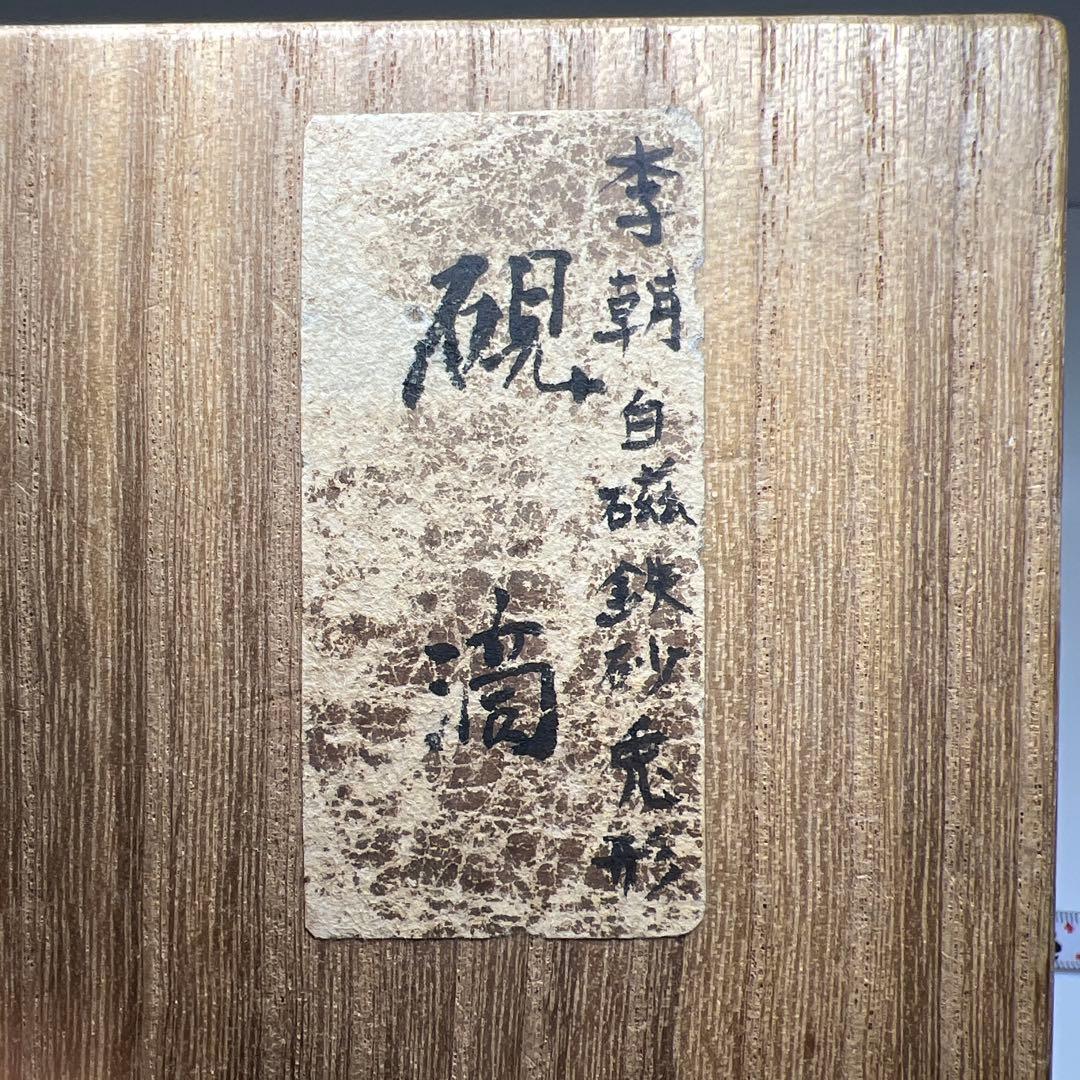 李朝白磁鉄砂兎形
硯滴